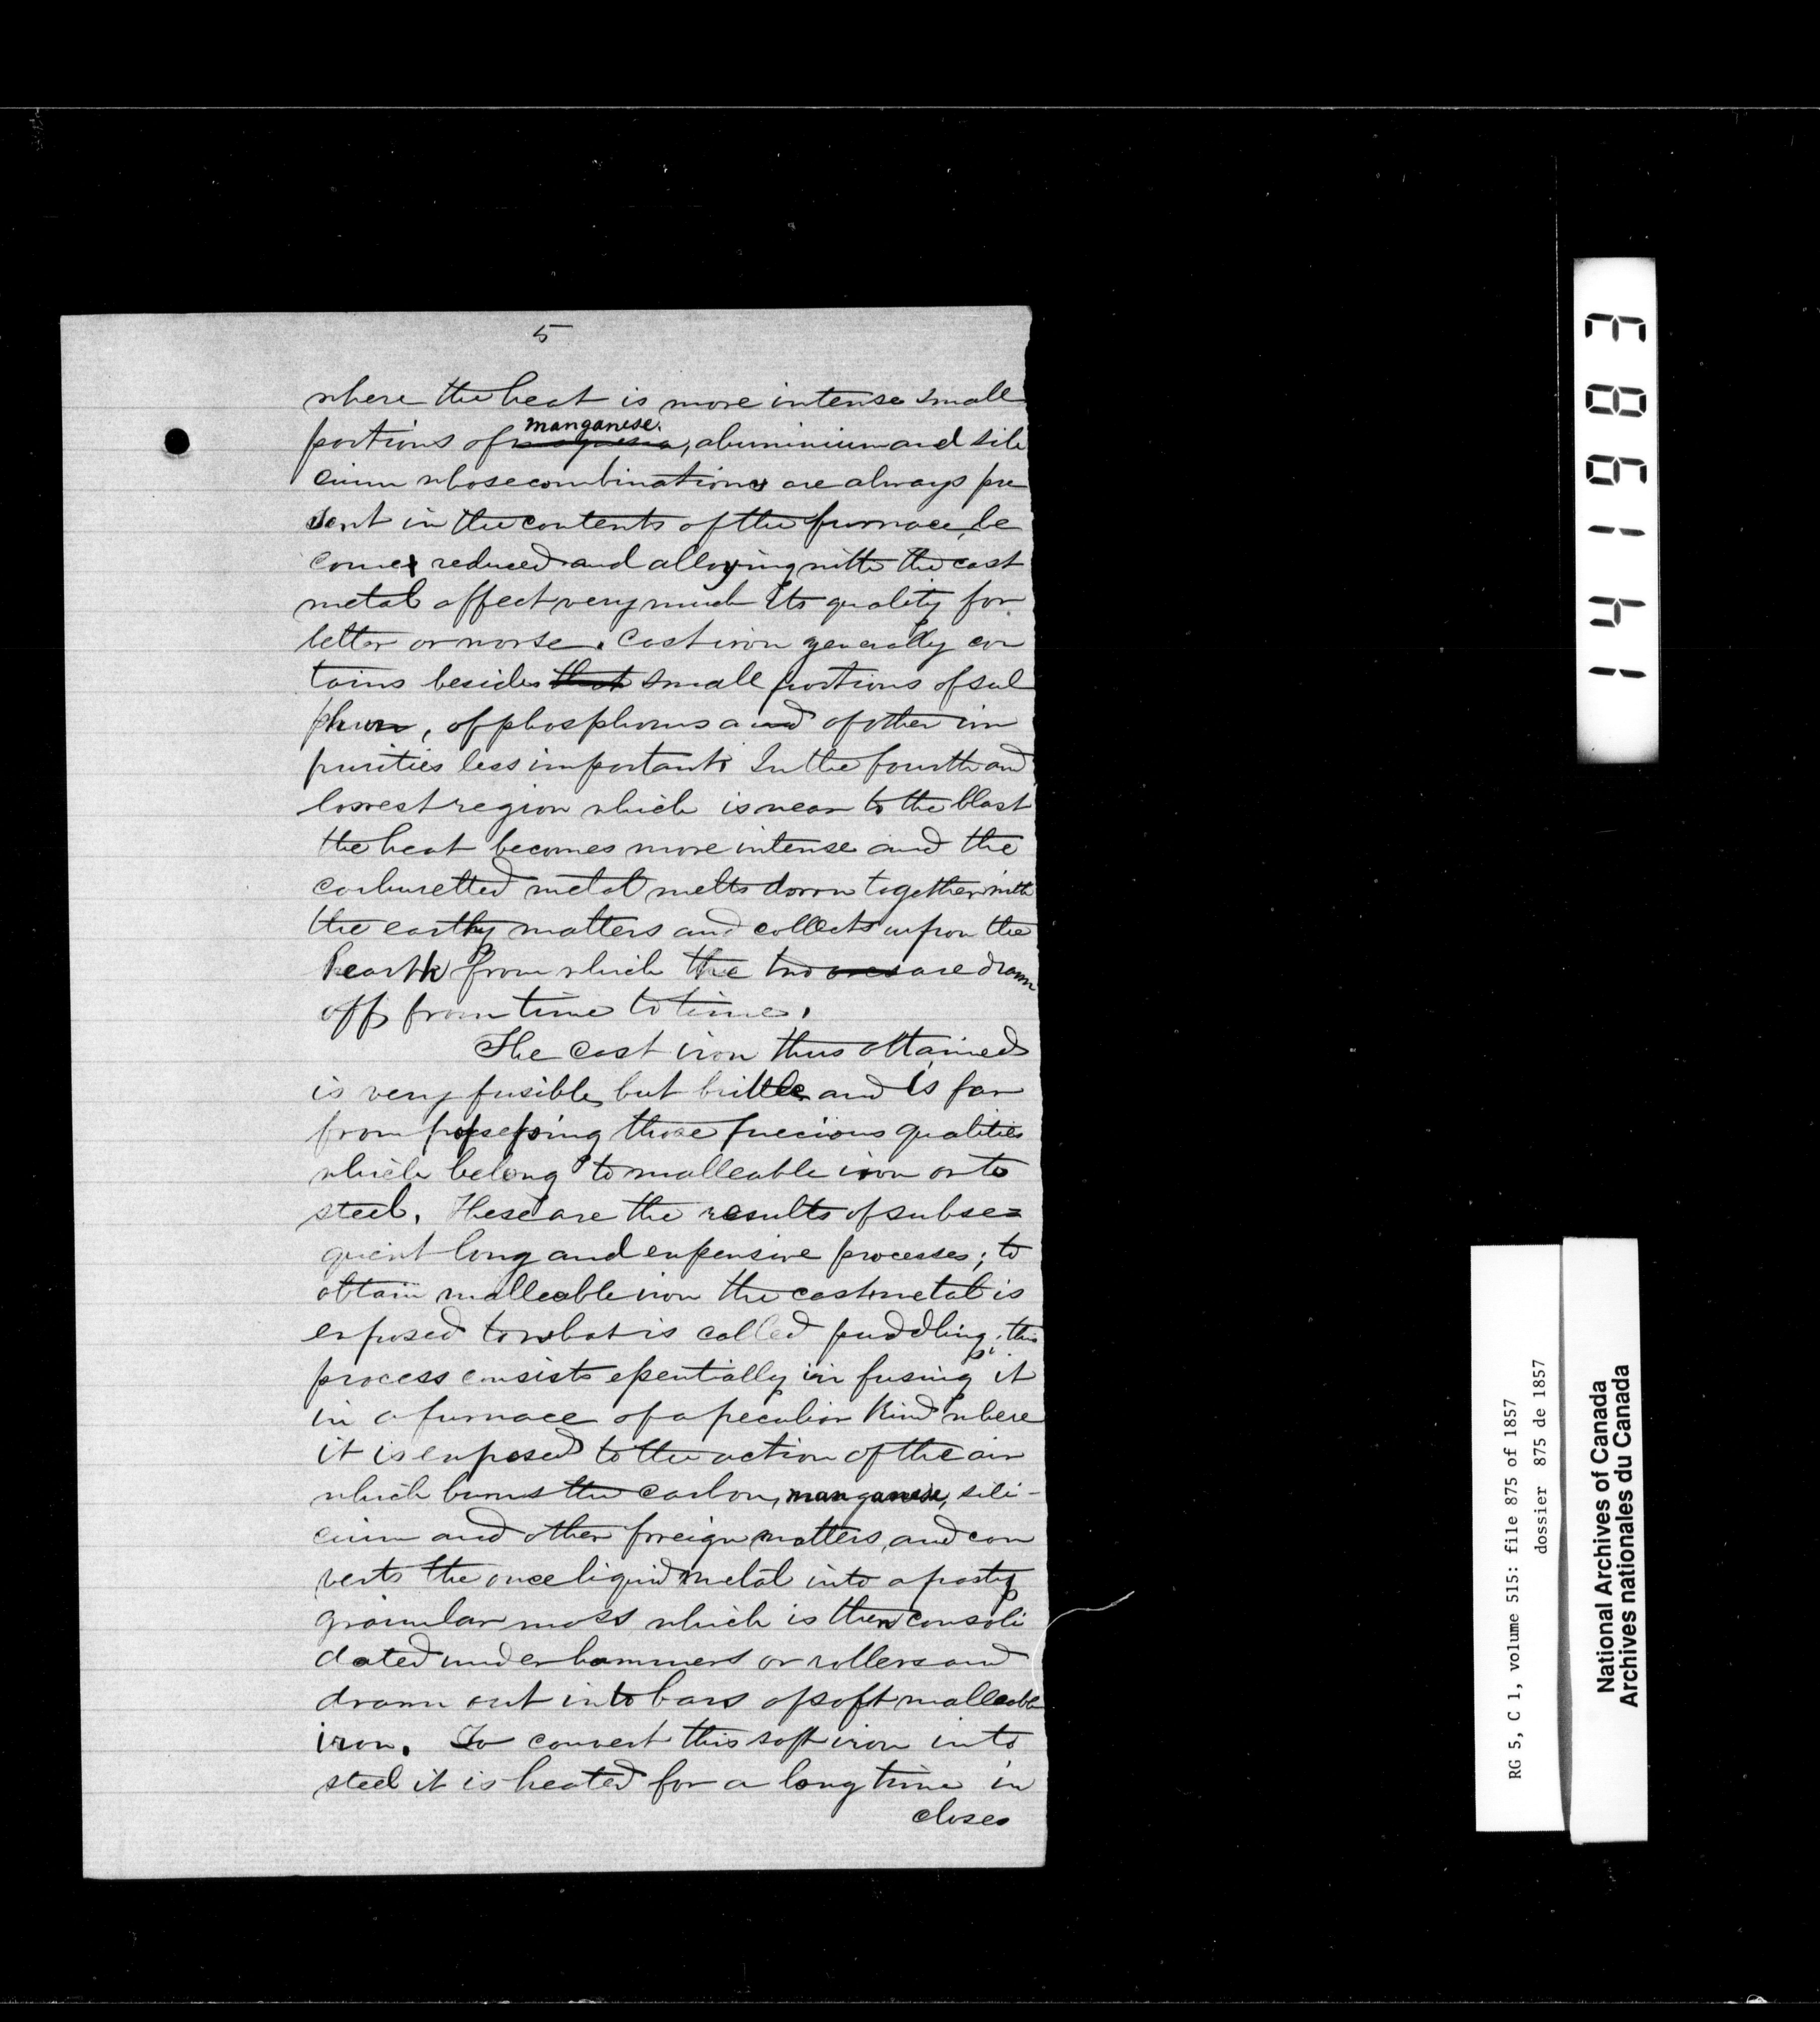 5
where the heat is more intense small
manganese.
portions of magnesia, aluminium and sili
cium whose combinations are always pre
sent in the contents of the furnace, be
comes reduced and alloying with the cast
metal affect very much its quality for
better or worse. Cast iron generally con
tains besides that small portions of sul
phur, of phosphorus and of other im
purities less important. In the fourth and
lowest region which is near to the blast
the heat becomes more intense and the
carburetted metal melts down together with
the earthy matters and collects upon the
hearth from which the two ones are drawn
off from time to time.
The cast iron thus obtained
is very fusible, but brittle and is far
from possessing those precious qualities
which belong to malleable iron or to
steel. These are the results of subse=
quent long and expensive processes; to
obtain malleable iron the cast metal is
exposed to what is called puddling; this
process consists essentially in fusing it
in a furnace of a peculiar kind where
it is exposed to the action of the air
which burns the carbon, manganese, sili-
cium and other foreign matters, and con
verts the once liquid metal into a pasty
granular mass which is then consoli
dated under hammers or rollers and
drawn out into bars of soft malleable
iron. To convert this soft iron into
steel it is heated for a long time in
closes
14 19883
RG 5, C 1, volume 515: file 875 of 1857
dossier 875 de 1857
National Archives of Canada
Archives nationales du Canada